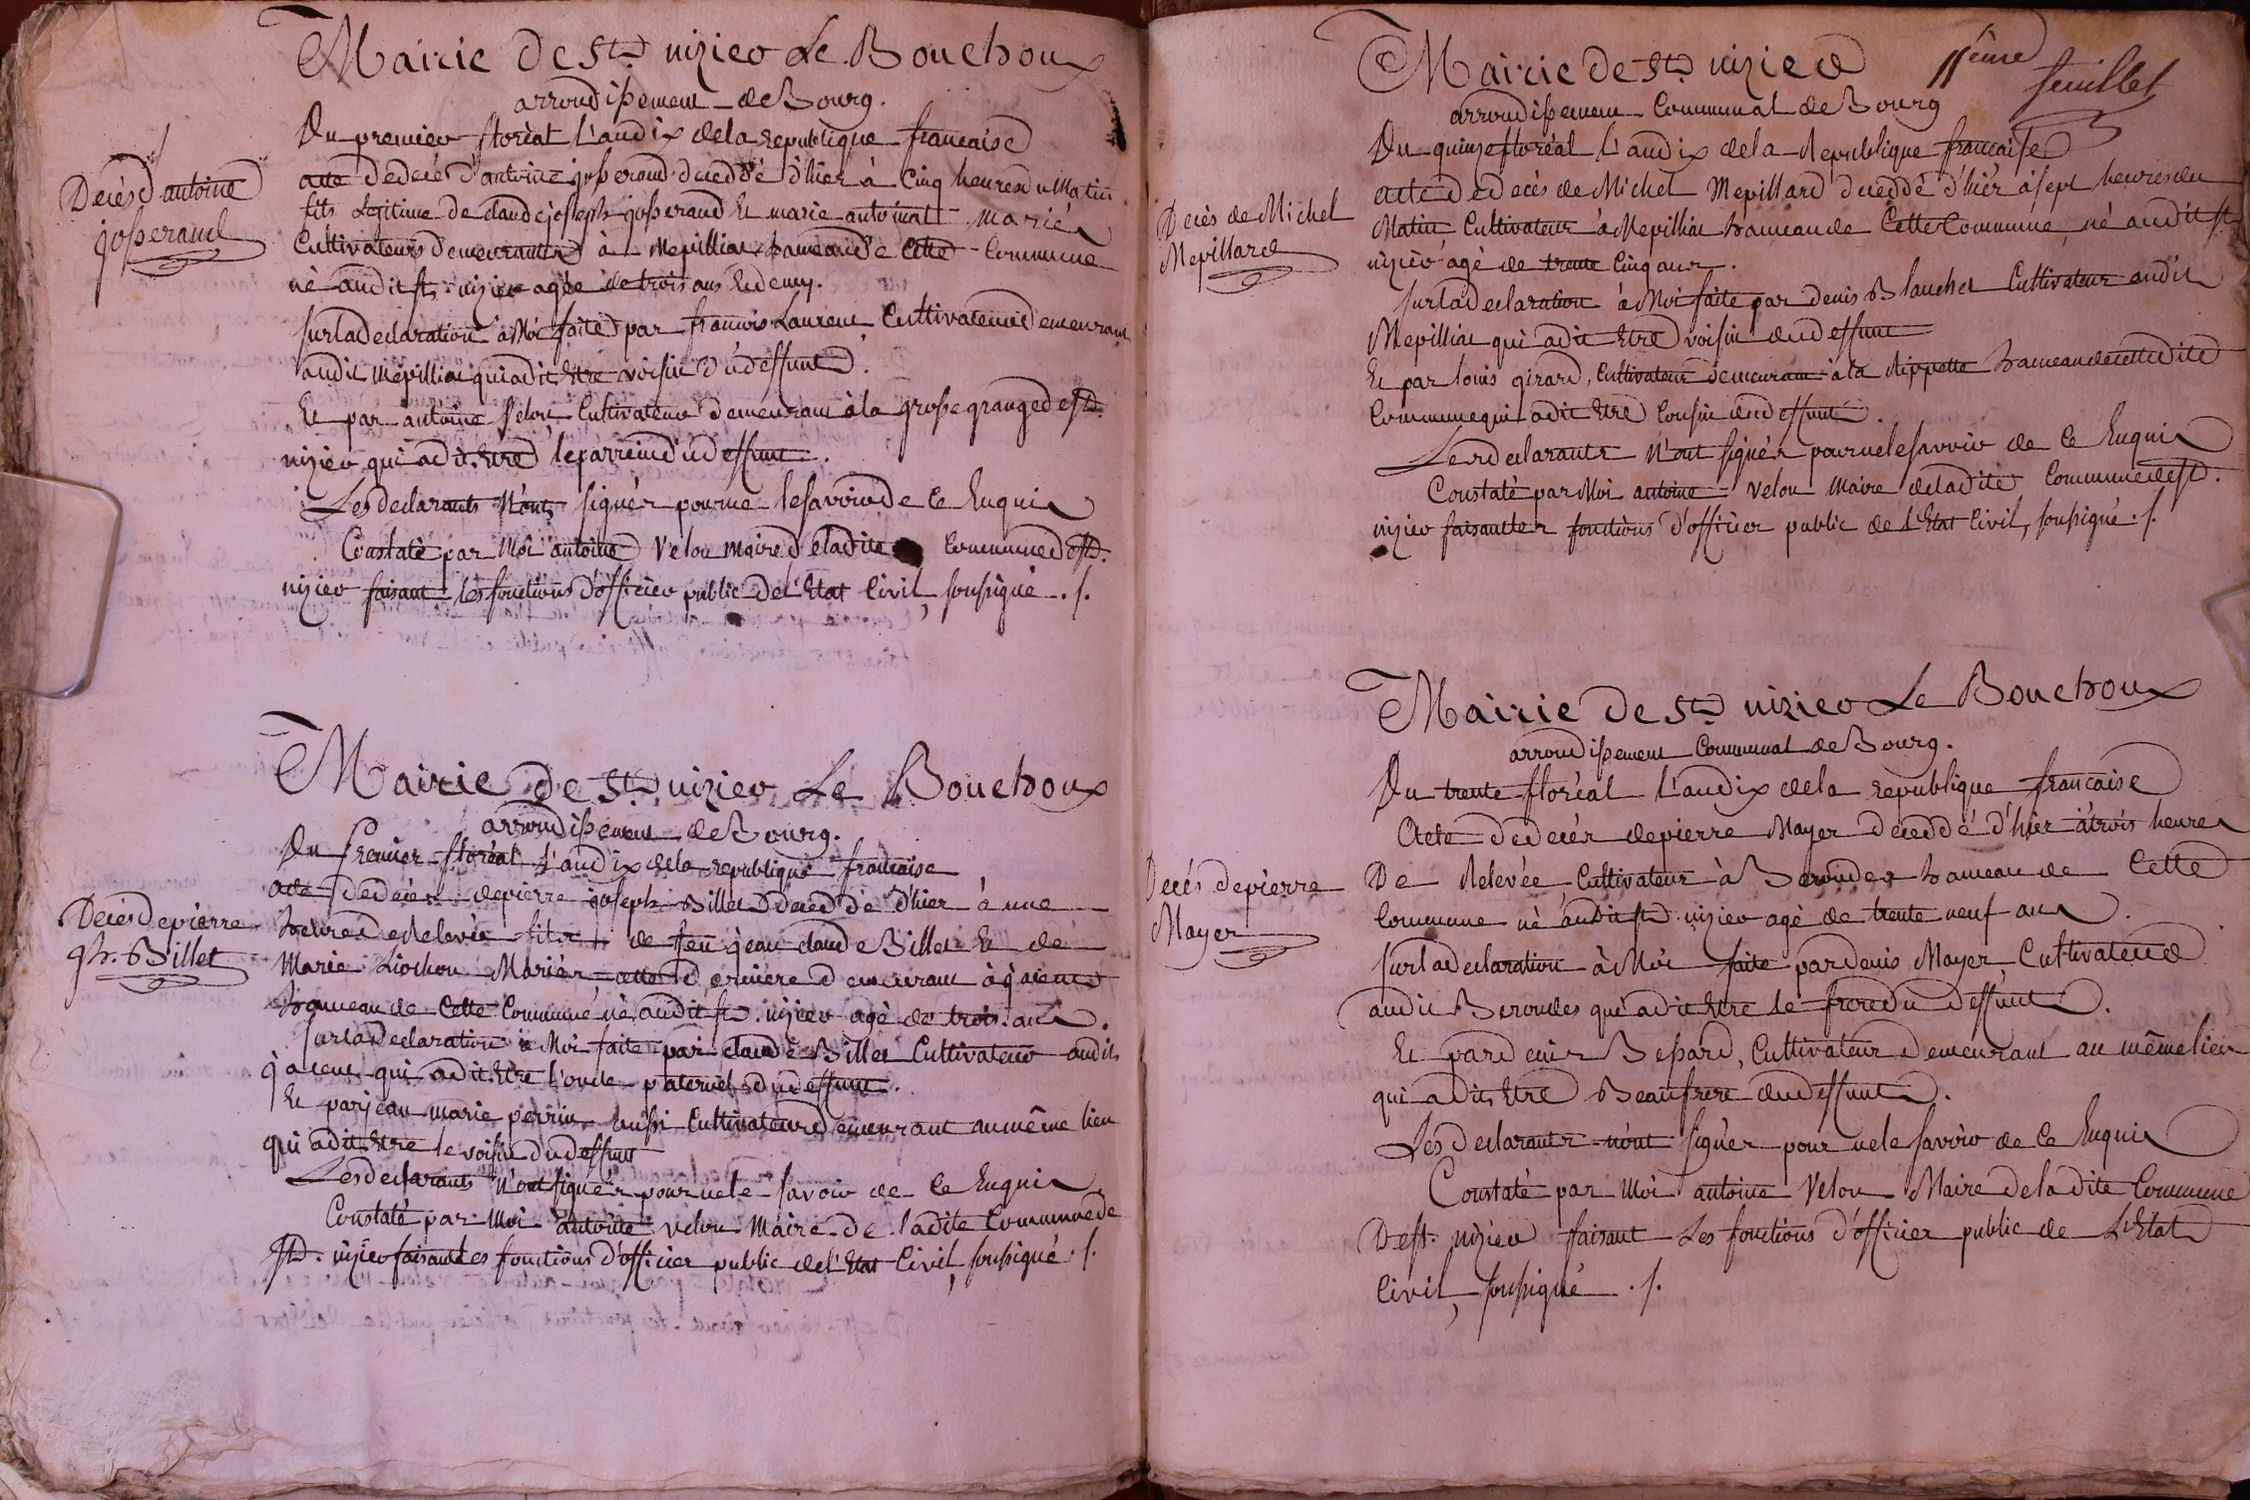 Mairie De St. nizier Le Bouchoux
arrondissement de Bourg.
Du premier floréal L'an dix de la republique francaise
Decès d'antoine
josserand
acte de decé d'antoine josserand decéddé d'hier à Cinq heures du Matin
fils Legitime de claude joseph josserand Et marie antoinat mariés
Cultivateurs demeurants à Mepilliat hameau de Cette Commune
né audit st. nizier agée de trois ans Et demy.
sur la declaration à Moi faite par francois Laurent Cultivateur demeurant
audit Mepilliat qui a dit Etre voisin du deffunt.
Et par antoine Velon Cultivateur demeurant à la grosse grange de st.
nizier qui a dit Etre le parrein du deffunt.
Les declarants N'ont signér pour ne le savoir de Ce Enquis
Constaté par Moi antoine Velon maire de la dite Commune de st.
nizier faisant les fonctions d'officier public de l'Etat Civil, soussigné . /.
Mairie de St. nizier Le Bouchoux
arrondissement de Bourg.
Du Premier floréal L'an dix de la republique francaise
Decès de pierre
jh. Billet
acte de decés de pierre joseph Billet Deced dé d'hier à une
heure de Relevée fils de feu jean claude Billet Et de
Marie Liochon Mariér, cette derniere demeurant à
hameau de Cette Commune né audit st. nizier agé de trois ans.
sur la declaration à Moi faite par claude Billet Cultivateur audit
qui a dit Etre l'oncle paternel du deffunt.
Et par jean marie perrin aussi Cultivateur demeurant au même lieu
qui a dit Etre le voisin du deffunt
Les declarants N'ont signér pour ne le savoir de Ce Enquis
Constaté par Moi antoine velon Maire de ladite Commune de
St. nizier faisant les fonctions d'officier public de l'Etat Civil, soussigné . /.
11eme
feuillet
Mairie de St. nizier
arrondissement Communal de Bourg
Du quinze floréal L'an dix de la Republique francaise
Decès de Michel
Mepillard
acte de decés de Michel Mepillard deceddé d'hier à sept heures du
Matin Cultivateur à Mepilliat hameau de Cette Commune, né audit st.
nizier agé de trente Cinq ans.
sur la declaration à Moi faite par denis Blanchet Cultivateur audit
Mepilliat qui a dit Etre voisin du deffunt
Et par louis girard, Cultivateur demeurant à la Rippette hameau de cette dite
Commune qui a dit Etre Cousin du deffunt.
Les declarants N'ont signér pour ne le savoir de Ce Enquis
Constaté par Moi antoine Velon Maire de ladite Commune de st.
nizier faisant les fonctions d'officier public de l'Etat Civil, soussigné . /.
Mairie de St. nizier Le Bouchoux
arrondissement Communal de Bourg.
Du trente floréal L'an dix de la republique francaise
Decés de pierre
Mayer
Acte de decér de pierre Mayer deceddé d'hier à trois heures
De Relevée Cultivateur à Beroudes hameau de Cette
Commune né audit st. nizier agé de trente neuf ans.
sur la declaration à Moi faite par denis Mayer Cultivateur
audit Beroudes qui a dit Etre le frere du deffunt.
Et par denis Bepard, Cultivateur demeurant au même lieu
qui a dit Etre Beaufrere du deffunt.
Les declarants n'ont signér pour ne le savoir de Ce Enquis
Constaté par Moi antoine Velon Maire de ladite Commune
De st. nizier faisant Les fonctions d'officier public de L'Etat
Civil, soussigné . /.